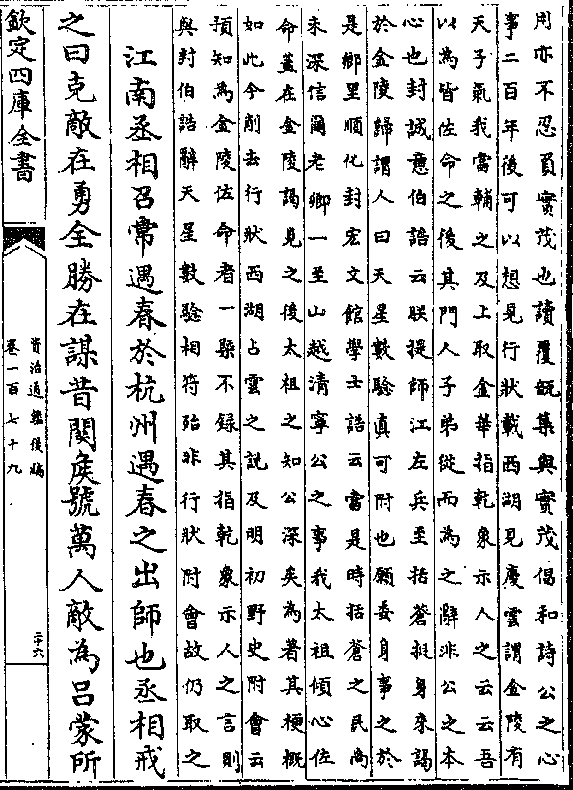 用亦不忍負實茂也讀覆瓿集與實茂倡和詩公之心
事二百年後可以想見行狀載西湖見慶雲謂金陵有
天子氣我當輔之及上取金華指乾象示人之云云吾
以為皆佐命之後其門人子弟從而為之辭非公之本
心也封誠意伯誥云朕提師江左兵至括蒼挺身來謁
於金陵歸謂人曰天星數驗真可附也願委身事之於
是鄉里順化封宏文館學士誥云當是時括蒼之民尚
未深信爾老卿一至山越清寧公之事我太祖傾心佐
命蓋在金陵謁見之後太祖之知公深矣為著其梗概
如此今削去行狀西湖占雲之說及明初野史附會云
預知為金陵佐命者一槩不錄其指乾象示人之言則
與封伯誥辭天星數驗相符殆非行狀附會故仍取之
江南丞相召常遇春於杭州遇春之出師也丞相戒
之曰克敵在勇全勝在謀昔關侯號萬人敵為呂蒙所
欽定四庫全書
資治通鑑後編
卷一百七十九
二十六